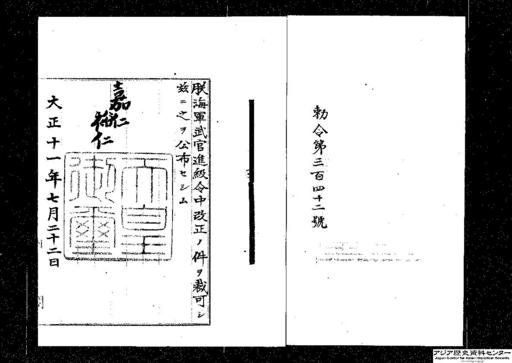 勅令第三百四十二號
朕海軍武官進級令中改正ノ件ヲ裁可シ
茲ニ之ヲ公布セシム
嘉仁
裕仁
天皇御璽
大正十一年七月二十二日
アジア歴史資料センター
Japan Center for Asian Historical Records